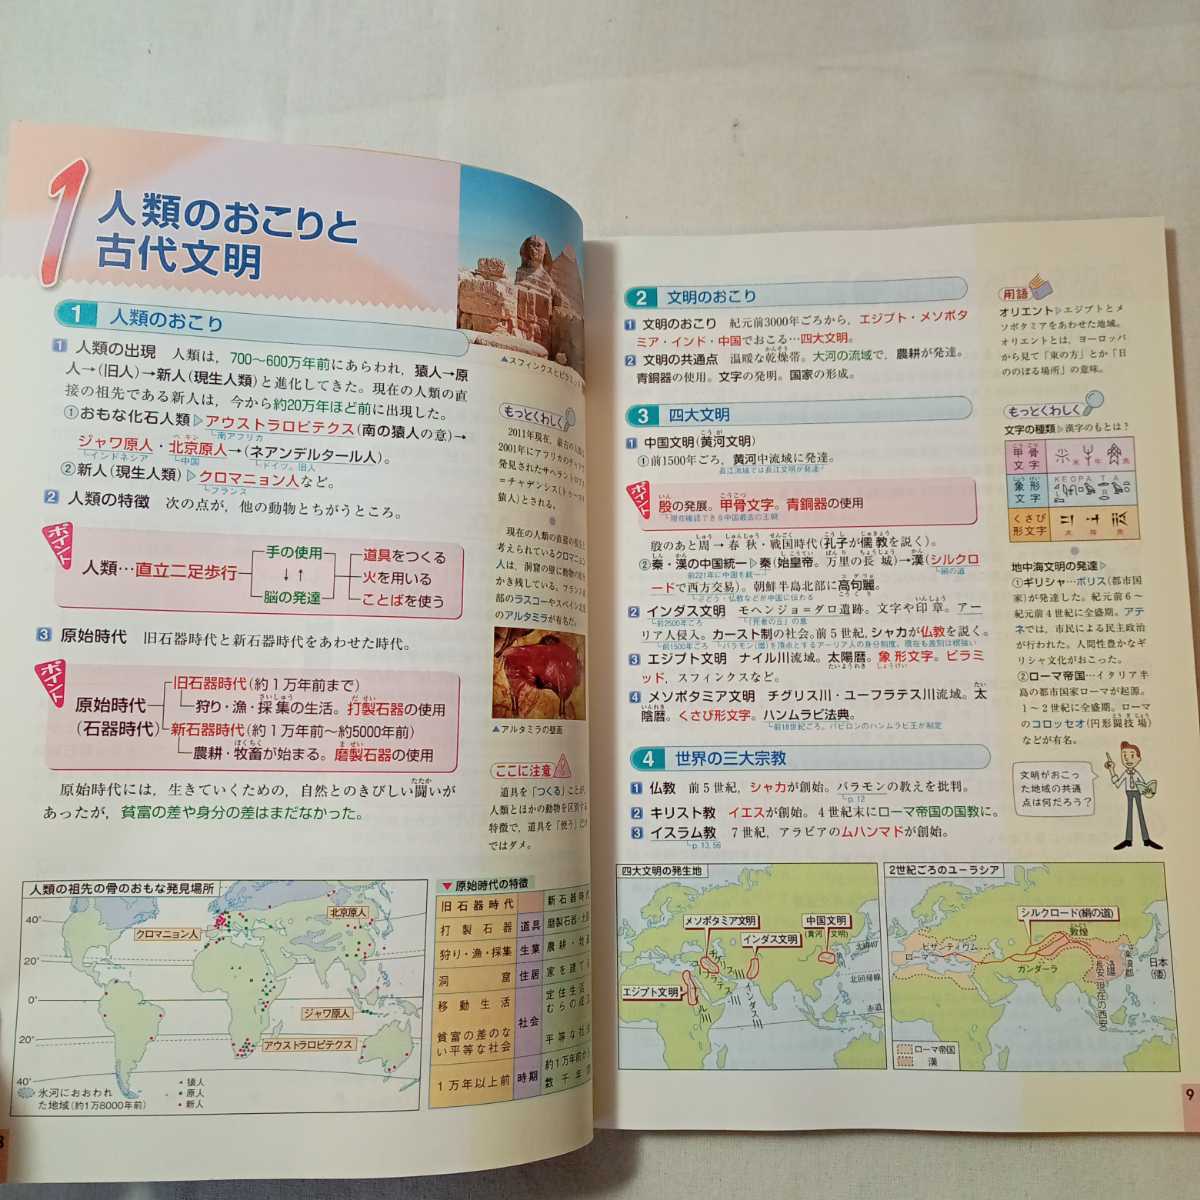 1 人類のおこりと
古代文明
▲スフィンクスとピラミッド
1 人類のおこり
1 人類の出現 人類は,700〜600万年前にあらわれ,猿人→原
人→(旧人)→新人(現生人類)と進化してきた。現在の人類の直
接の祖先である新人は,今から約20万年ほど前に出現した。
①おもな化石人類▷アウストラロピテクス(南の猿人の意)→
南アフリカ
ジャワ原人・北京原人→(ネアンデルタール人)。
ペキン
インドネシア
中国
ドイツ。旧人
②新人(現生人類)▷クロマニョン人など。
フランス
2 人類の特徴 次の点が,他の動物とちがうところ。
ポイント
人類…直立二足歩行
手の使用
↓↑
脳の発達
道具をつくる
火を用いる
ことばを使う
3 原始時代 旧石器時代と新石器時代をあわせた時代。
ポイント
原始時代
(石器時代)
旧石器時代(約1万年前まで)
狩り・漁・採集の生活。打製石器の使用
さいしゅう
だせい
新石器時代(約1万年前〜約5000年前)
農耕・牧畜が始まる。磨製石器の使用
ぼくちく
ませい
原始時代には,生きていくための,自然とのきびしい闘いが
たたか
あったが,貧富の差や身分の差はまだなかった。
もっとくわしく
2011年現在,最古の人類は
2001年にアフリカのチャド
発見されたサヘラントロプス
=チャデンシス(トゥーマイ
猿人)とされる。
現在の人類の直接の祖先と
考えられているクロマニョン
人は,洞窟の壁に動物の絵を
かき残している。フランス南
部のラスコーやスペイン北部
のアルタミラが有名だ。
▲アルタミラの壁画
ここに注意
道具を「つくる」ことが,
人類とほかの動物を区別する
特徴で,道具を「使う」だけ
ではダメ。
人類の祖先の骨のおもな発見場所
40°
20°
0°
20°
40°
クロマニョン人
北京原人
ジャワ原人
アウストラロピテクス
氷河におおわれ
た地域(約1万8000年前)
・猿人
・原人
・新人
▼原始時代の特徴
旧石器時代
新石器時代
打製石器
道具
磨製石器・土器
狩り・漁・採集
生業
農耕・牧畜
洞窟
住居
家を建てる
移動生活
社会
定住生活
むらの成立
貧富の差のな
い平等な社会
平等な社会
1万年以上前
時期
約1万年前から
数千年間
2 文明のおこり
1 文明のおこり 紀元前3000年ごろから,エジプト・メソポタ
ミア・インド・中国でおこる…四大文明。
2 文明の共通点 温暖な乾燥帯。大河の流域で,農耕が発達。
かんそう
青銅器の使用。文字の発明。国家の形成。
3 四大文明
1 中国文明(黄河文明)
こうが
①前1500年ごろ,黄河中流域に発達。
長江流域では長江文明が発達
ポイント
殷の発展。甲骨文字。青銅器の使用
いん
こうこつ
現在確認できる中国最古の王朝
殷のあと周→春秋・戦国時代(孔子が儒教を説く)。
しゅう
しゅんじゅう
せんごく
こうし
じゅきょう
②秦・漢の中国統一▷秦(始皇帝。万里の長城)→漢(シルクロ
しん
かん
しこうてい
ばんり
ちょうじょう
前221年に中国を統一
絹の道
ードで西方交易)。朝鮮半島北部に高句麗。
コグリョ
こうくり
ぶどう・仏教などが中国に伝わる
2 インダス文明 モヘンジョ=ダロ遺跡。文字や印章。アー
いんしょう
前2500年ごろ
「死者の丘」の意
リア人侵入。カースト制の社会。前5世紀,シャカが仏教を説く。
前1500年ごろ
バラモン(僧)を頂点とするアーリア人の身分制度。現在も差別は根強い
3 エジプト文明 ナイル川流域。太陽暦。象形文字。ピラミ
たいようれき
しょうけい
ッド,スフィンクスなど。
4 メソポタミア文明 チグリス川・ユーフラテス川流域。太
たい
陰暦。くさび形文字。ハンムラビ法典。
いんれき
前18世紀ごろ。バビロンのハンムラビ王が制定
4 世界の三大宗教
1 仏教 前5世紀,シャカが創始。バラモンの教えを批判。
p.12
2 キリスト教 イエスが創始。4世紀末にローマ帝国の国教に。
3 イスラム教 7世紀,アラビアのムハンマドが創始。
p.13,56
用語
オリエント▷エジプトとメ
ソポタミアをあわせた地域。
オリエントとは,ヨーロッパ
から見て「東の方」とか「日
ののぼる場所」の意味。
もっとくわしく
文字の種類▷漢字のもとは?
甲骨
文字
こうこつ
象形
文字
しょうけい
KEOPATA
R
くさび
形文字
地中海文明の発達▷
①ギリシャ…ポリス(都市国
家)が発達した。紀元前6〜
紀元前4世紀に全盛期。アテ
ネでは,市民による民主政治
が行われた。人間性豊かなギ
リシャ文化がおこった。
②ローマ帝国…イタリア半
島の都市国家ローマが起源。
1〜2世紀に全盛期。ローマ
のコロッセオ(円形闘技場)
とうぎ
などが有名。
文明がおこっ
た地域の共通
点は何だろう?
四大文明の発生地
メソポタミア文明
インダス文明
中国文明
(黄河文明)
エジプト文明
インダス川
北緯40°
北回帰線
赤道
2世紀ごろのユーラシア
シルクロード(絹の道)
ビザンティウム
ローマ
ガンダーラ
敦煌
長安(現在の西安)
洛陽
楽浪郡
日本
(倭)
ローマ帝国
漢
8
9